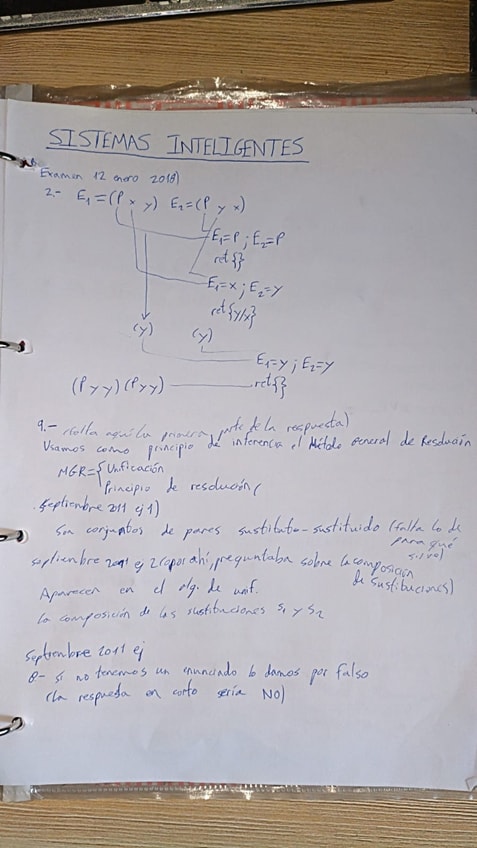 SISTEMAS INTELIGENTES
Examen 12 enero 2018)
2.- E₁=(P x y) E₂=(P y x)
E₁=P ; E₂=P
ret{}
E₁=x ; E₂=y
ret{y/x}
(y) (y)
E₁=y ; E₂=y
(P y y) (P y y) ret{}
9.- (falta aquí la primera parte de la respuesta)
Usamos como principio de inferencia el Método General de Resolución
MGR={ Unificación
Principio de resolución(
Septiembre 2011 ej 1)
Son conjuntos de pares sustituto-sustituido (falta lo de
para qué
sirve)
septiembre 2011 ej 2(o por ahí, preguntaba sobre la composición
de sustituciones)
Aparecen en el alg. de unif.
la composición de las sustituciones s₁ y s₂
Septiembre 2011 ej
8- si no tenemos un enunciado lo damos por falso
(la respuesta en corto sería NO)